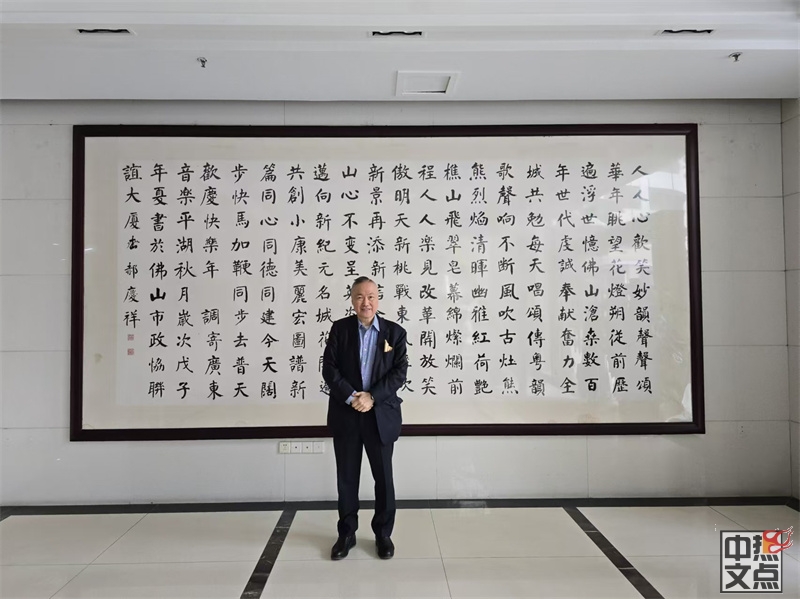 人人心歡笑妙韻聲聲頌
華年眺望花燈朔從前歷
遍浮世憶佛山滄桑數百
年世代虔誠奉献奮力全
城共勉每天唱頌傳粵韻
歌聲响不断風吹古灶熊
熊烈焰清暉幽雅紅荷艷
樵山飛翠皂幕綿燦爛前
程人人樂見改革開放笑
傲明天新桃戰東
新景再添新
山心不變呈英
邁向新紀元名城花
共創小康美麗宏圖譜新
篇同心同德同建今天闊
步快馬加鞭同步去普天
歡慶快樂年 調寄廣東
音樂平湖秋月歲次戊子
年夏書於佛山市政協聯
誼大厦 郝慶祥
中热
文点